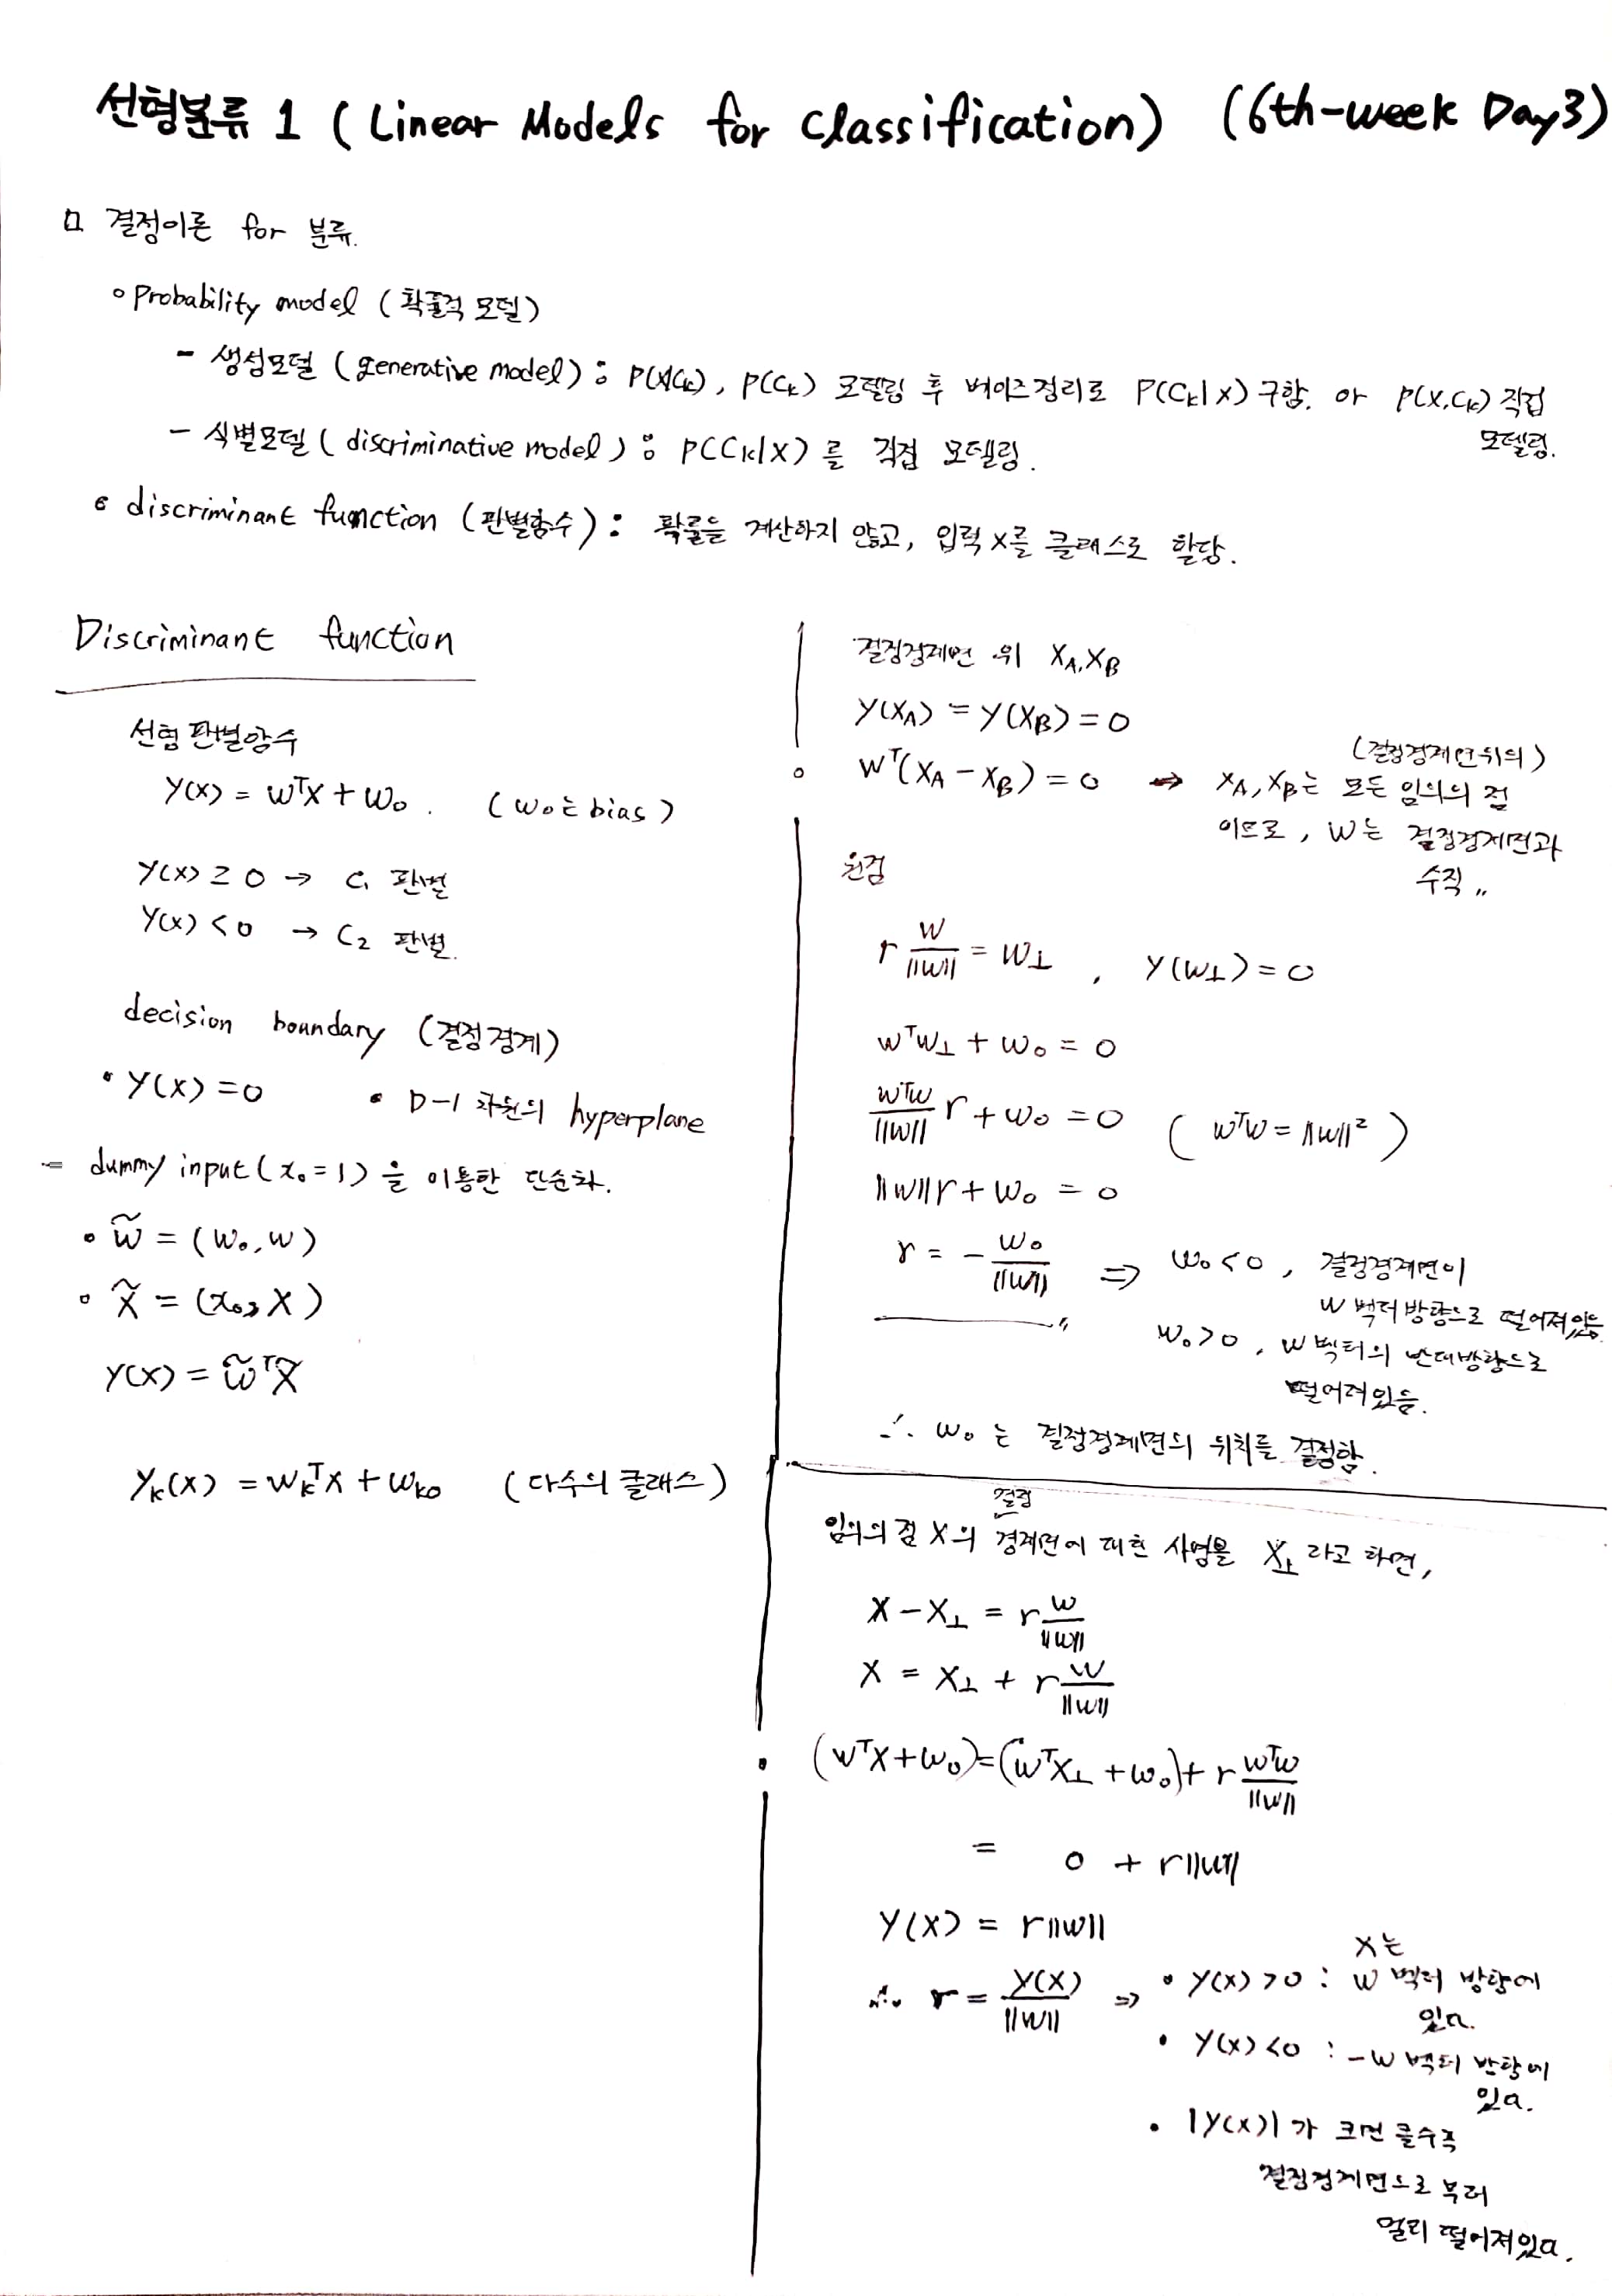 선형분류 1 (Linear Models for classification) (6th-week Day3)
□ 결정이론 for 분류.
∘ Probability model (확률적 모델)
- 생성모델 (generative model) : P(X|Ck), P(Ck) 모델링 후 베이즈정리로 P(Ck|X) 구함. or P(X,Ck) 직접
모델링.
- 식별모델 (discriminative model) : P(Ck|X) 를 직접 모델링.
∘ discriminant function (판별함수) : 확률을 계산하지 않고, 입력 X를 클래스로 할당.
Discriminant function
선형 판별함수
Y(X) = WᵀX + W₀. (W₀는 bias)
Y(X) ≥ 0 → C₁ 판별
Y(X) < 0 → C₂ 판별.
decision boundary (결정경계)
• Y(X) = 0 • D-1 차원의 hyperplane
- dummy input (x₀=1) 을 이용한 단순화.
• W̃ = (W₀, W)
∘ X̃ = (x₀, X)
Y(X) = W̃ᵀX̃
Yₖ(X) = WₖᵀX + Wₖ₀ (다수의 클래스)
결정경계면 위 X_A, X_B
Y(X_A) = Y(X_B) = 0
(결정경계면위의)
Wᵀ(X_A - X_B) = 0 → X_A, X_B는 모든 임의의 점
이므로, W는 결정경계면과
수직 〃
원점
r W/||W|| = W⊥ , Y(W⊥) = 0
WᵀW⊥ + W₀ = 0
WᵀW/||W|| r + W₀ = 0 (WᵀW = ||W||²)
||W||r + W₀ = 0
r = - W₀/||W|| ⇒ W₀ < 0, 결정경계면이
W 벡터 방향으로 떨어져있음
〃 W₀ > 0, W 벡터의 반대방향으로
떨어져있음.
∴ W₀ 는 결정경계면의 위치를 결정함.
결정
임의의 점 X의 경계면에 대한 사영을 X⊥ 라고 하면,
X - X⊥ = r W/||W||
X = X⊥ + r W/||W||
(WᵀX + W₀) = (WᵀX⊥ + W₀) + r WᵀW/||W||
= 0 + r||W||
Y(X) = r||W||
X는
∴ r = Y(X)/||W|| ⇒ • Y(X) > 0 : W 벡터 방향에
있다.
• Y(X) < 0 : -W 벡터 방향에
있다.
• |Y(X)| 가 크면 클수록
결정경계면으로 부터
멀리 떨어져있다.